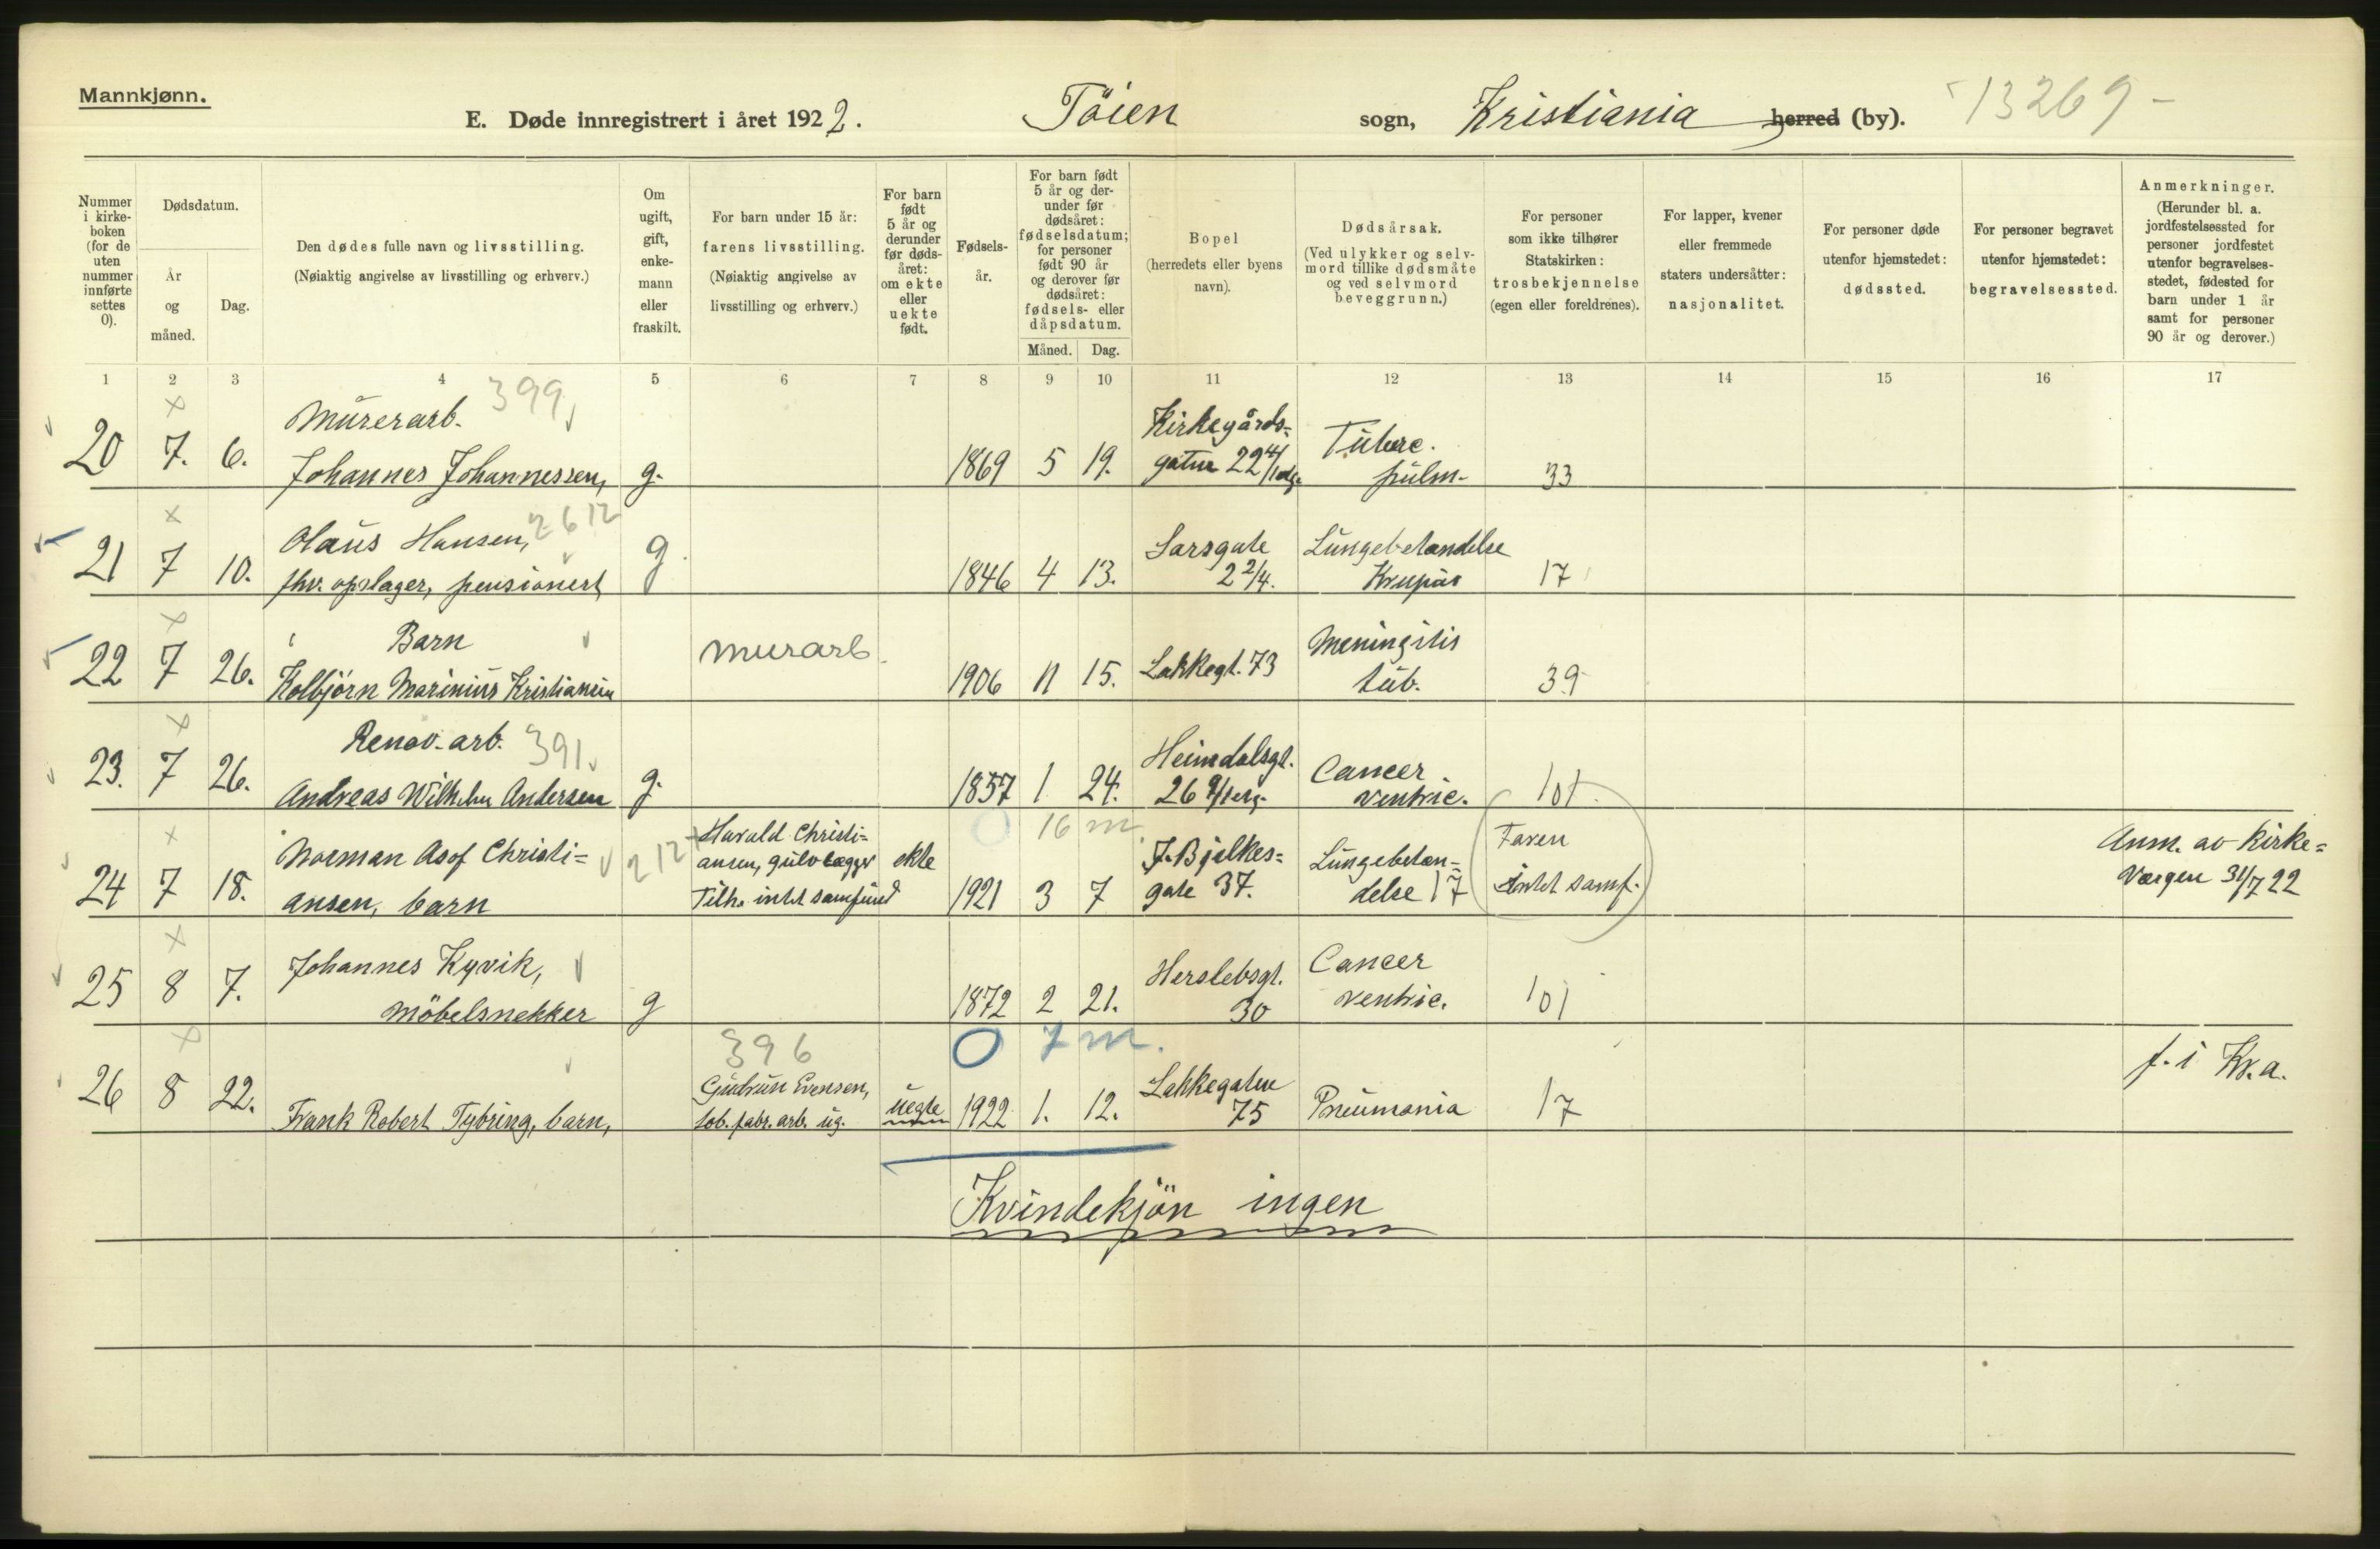 Mannkjønn.
E. Døde innregistrert i året 1922. Töien sogn, Kristiania herred (by). 13269 -
Nummer i kirke-boken (for de uten nummer innførte settes 0).
Dødsdatum.
År og måned.
Dag.
Den dødes fulle navn og livsstilling.
(Nøiaktig angivelse av livsstilling og erhverv.)
Om ugift, gift, enke-mann eller fraskilt.
For barn under 15 år:
farens livsstilling.
(Nøiaktig angivelse av livsstilling og erhverv.)
For barn født 5 år og derunder før døds-året: om ekte eller uekte født.
Fødsels-år.
For barn født 5 år og der-under før dødsåret: fødselsdatum; for personer født 90 år og derover før dødsåret: fødsels- eller dåpsdatum.
Måned. Dag.
Bopel
(herredets eller byens navn).
Dødsårsak.
(Ved ulykker og selv-mord tillike dødsmåte og ved selvmord beveggrunn.)
For personer som ikke tilhører Statskirken: trosbekjennelse (egen eller foreldrenes).
For lapper, kvener eller fremmede staters undersåtter: nasjonalitet.
For personer døde utenfor hjemstedet: dødssted.
For personer begravet utenfor hjemstedet: begravelsessted.
Anmerkninger.
(Herunder bl. a. jordfestelsessted for personer jordfestet utenfor begravelses-stedet, fødested for barn under 1 år samt for personer 90 år og derover.)
1 2 3 4 5 6 7 8 9 10 11 12 13 14 15 16 17
Murerarb. 399 Kirkegårds= Tuberc.
20 7. 6. Johannes Johannessen, g. 1869 5 19. gaten 22 pulm. 33
Olaus Hansen, 2612 Sarsgate Lungebetændelse
21 7 10. fhv. opslager, pensionert g. 1846 4 13. 2 2/4. Krupøs 17
Barn murarb. Meningitis
22 7 26. Kolbjörn Marinius Kristiansen 1906 11 15. Lakkegt. 73 tub. 39
Renov. arb. 391 Heimdalsgt. Cancer
23. 7 26. Andreas Wilhelm Andersen g. 1857 1 24. 26 ventric. 101
Norman Asof Christi= 212 Harald Christi= 0 16 m J. Bjelkes= Lungebetæn= Faren Anm. av Kirke=
ansen, gulvlægger ekte
24 7 18. ansen, barn Tilh. intet samfund 1921 3 7 gate 37. delse 17 intet samf. Værgen 31/7 22
Johannes Kyvik, Herslebsgt. Cancer
25 8 7. möbelsnekker g 1872 2 21. 30 ventric. 101
396 0 7 m.
Gudrun Evensen, Lakkegaten f. i Kr.a.
26 8 22. Frank Robert Tybring, barn, tob. fabr. arb. ug. uegte 1922 1. 12. 75 Pneumonia 17
Kvindekjön ingen